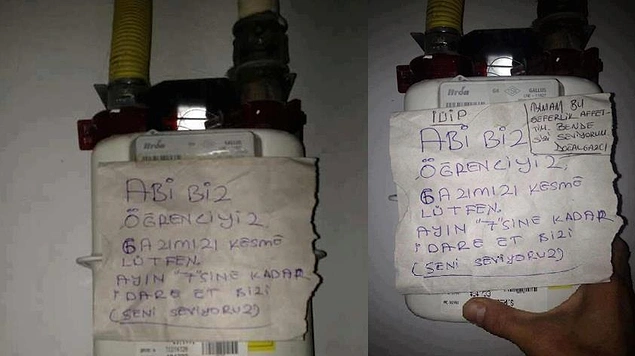 Itron
GALLUS
ABİ BİZ
ÖĞRENCİYİZ
GAZIMIZI KESME
LÜTFEN.
AYIN "7"SİNE KADAR
İDARE ET BİZİ
(SENİ SEVİYORUZ)
Itron
G4
GALLUS
ABİ BİZ
ÖĞRENCİYİZ.
GAZIMIZI KESME
LÜTFEN.
AYIN "7"SİNE KADAR
İDARE ET BİZİ
(SENİ SEVİYORUZ)
TAMAM BU
SEFERLİK AFFET-
TİM. BENDE
SİZİ SEVİYORUM.
DOĞALGAZCI